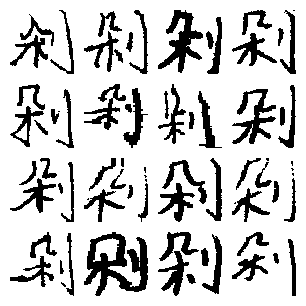 剁剁剁剁
剁剁剁剁
剁剁剁剁
剁剁剁剁